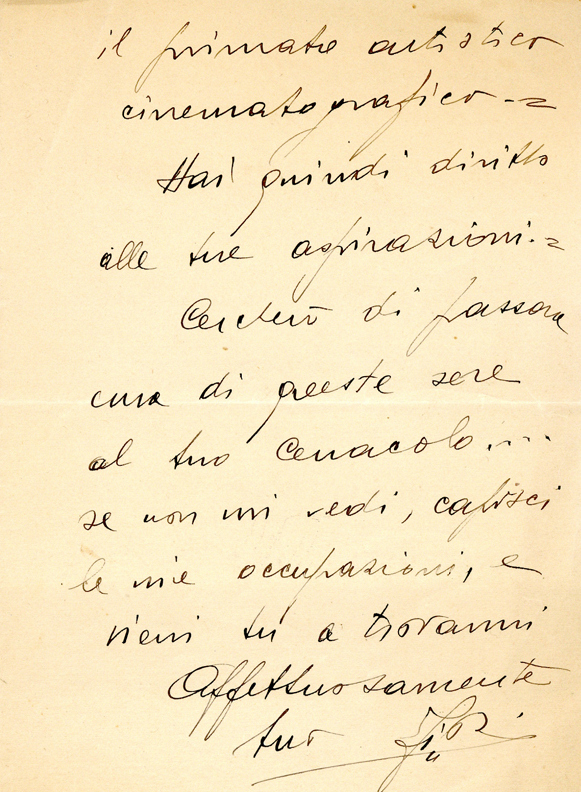 il primato artistico
cinematografico -=
Hai quindi diritto
alle tue aspirazioni.=
Cercherò di passare
una di queste sere
al tuo Cenacolo....
se non mi vedi, capisci
le mie occupazioni, e
vieni tu a trovarmi
Affettuosamente
tuo